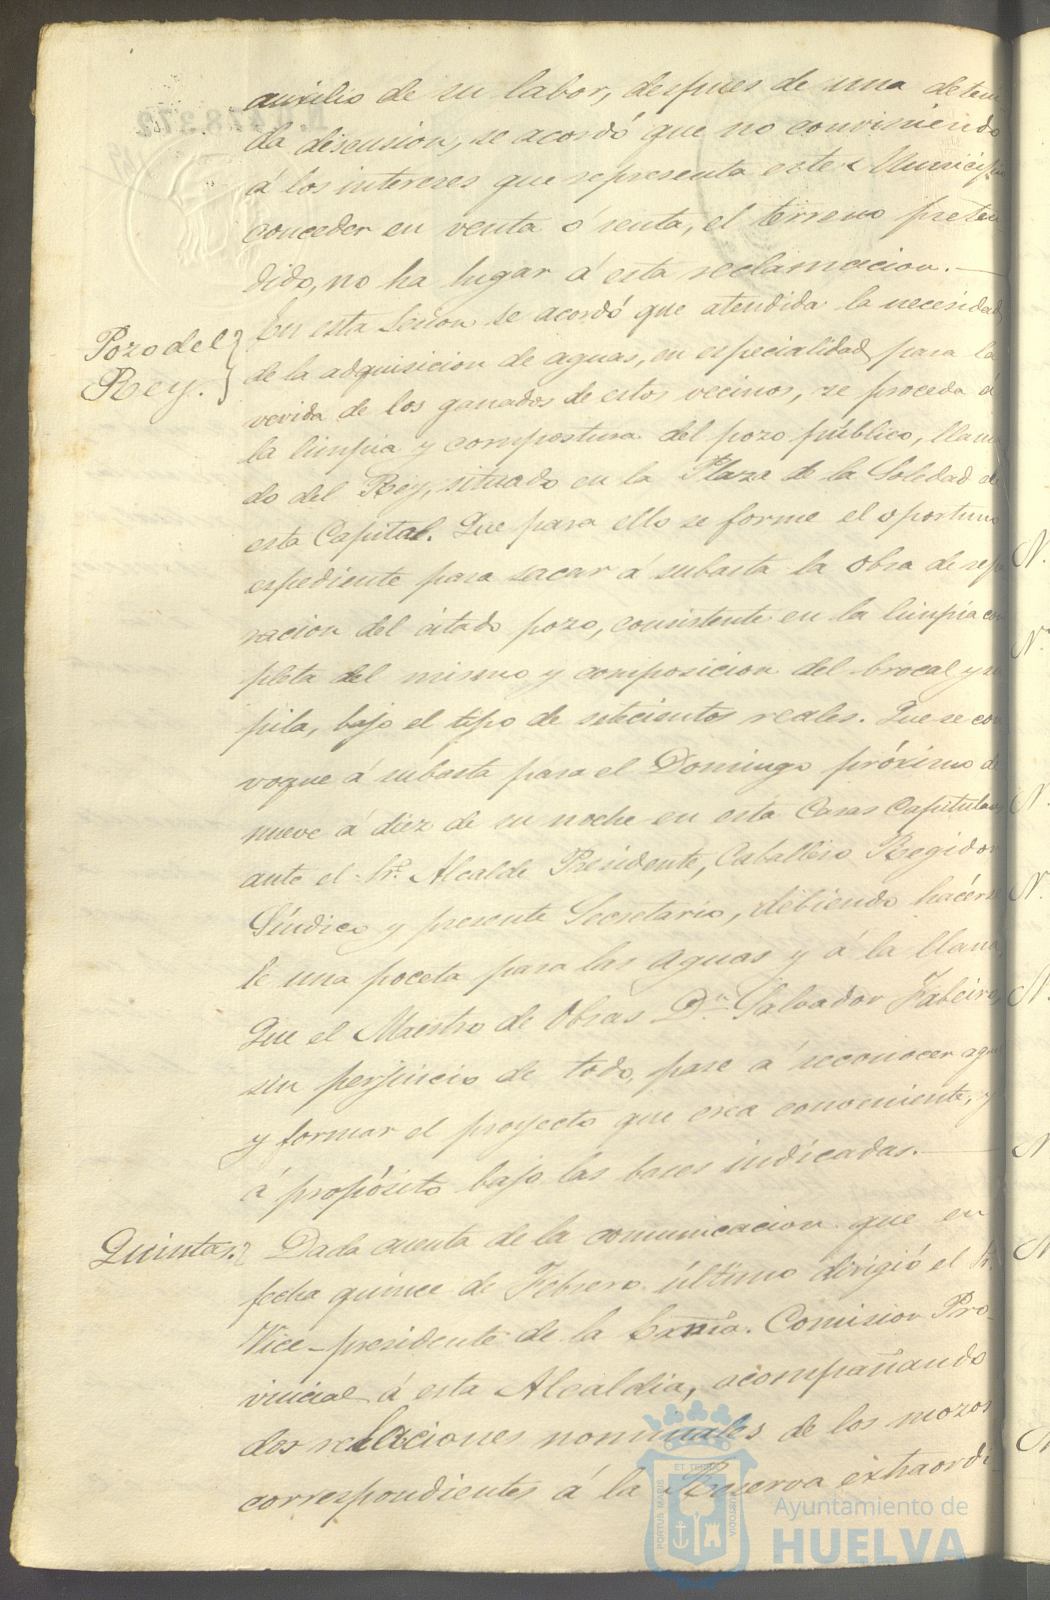 auxilio de su labor, despues de una deteni
da discusion, se acordó que no conviniendo
á los intereses que representa este Municipio
conceder en venta ó renta, el terreno preten
dido, no ha lugar á esta reclamacion.—
Pozo del
Rey.
En esta sesion se acordó que atendida la necesidad
de la adquisicion de aguas, en especialidad para la
vevida de los ganados de estos vecinos, se proceda á
la limpia y compostura del pozo público, llama
do del Rey, situado en la Plaza de la Soledad de
esta Capital. Que para ello se forme el oportuno
espediente para sacar á subasta la obra de repa
racion del citado pozo, consistente en la limpia com
pleta del mismo y composicion del brocal y su
pila, bajo el tipo de setecientos reales. Que se con
voque á subasta para el Domingo próximo de
nueve á diez de su noche en esta Casas Capitulares
ante el Sr. Alcalde Presidente, Caballero Regidor
Síndico y presente Secretario, debiendo hacérse
le una poceta para las aguas y á la llana.
Que el Maestro de Obras Dn. Salvador
sin perjuicio de todo, pase á reconocer aquel
y formar el proyecto que crea conveniente, y
á propósito bajo las bases indicadas.—
Quintas.
Dada cuenta de la comunicacion que en
fecha quince de Febrero último dirigió el Sr.
Vice-presidente de la Exma. Comision Pro-
vincial á esta Alcaldia, acompañando
dos relaciones nominales de los mozos
correspondientes á la Reserva extraordi-
PORTUS MARIS
ET TERRAE
CUSTODIA
Ayuntamiento de
HUELVA